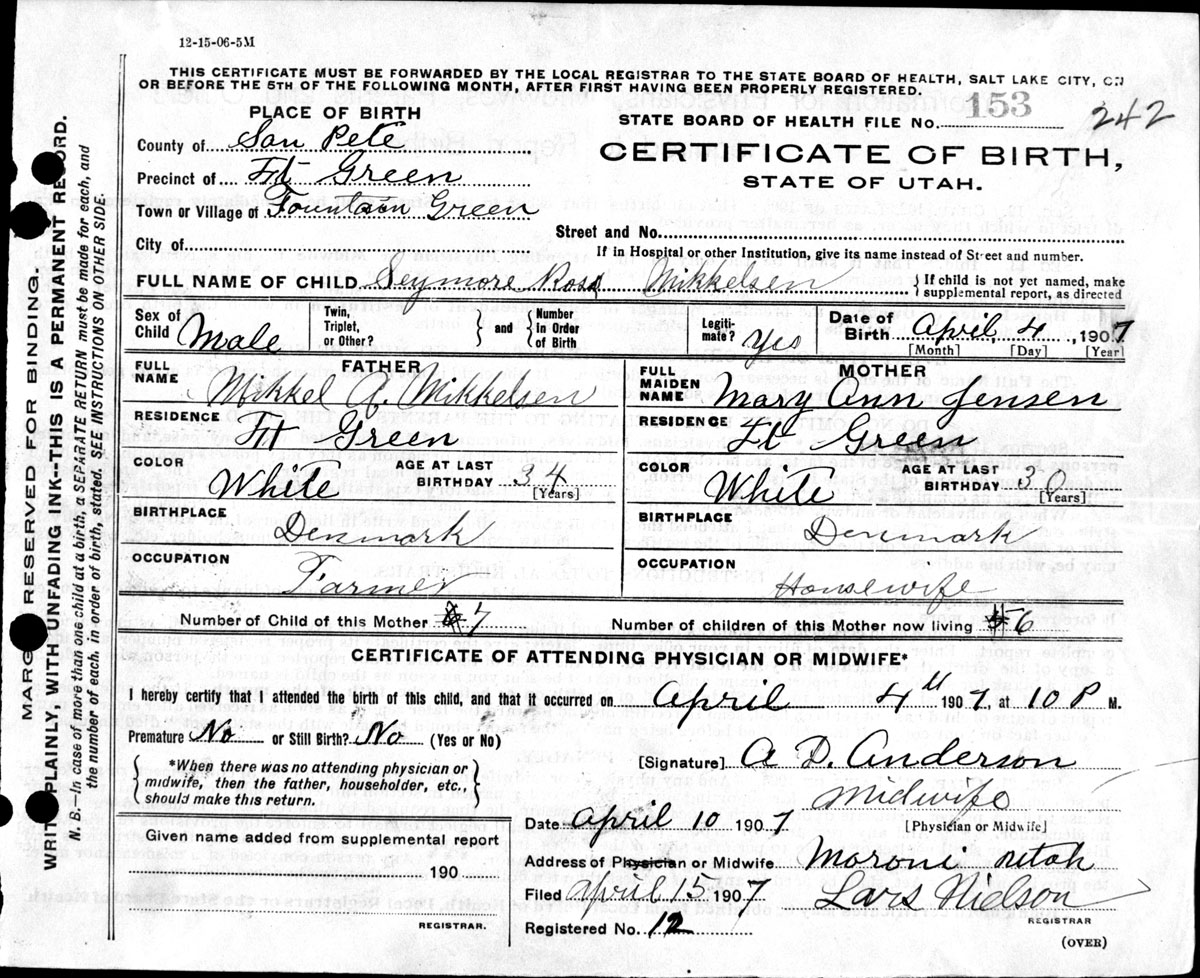 12-15-06-5M
THIS CERTIFICATE MUST BE FORWARDED BY THE LOCAL REGISTRAR TO THE STATE BOARD OF HEALTH, SALT LAKE CITY, ON
OR BEFORE THE 5TH OF THE FOLLOWING MONTH, AFTER FIRST HAVING BEEN PROPERLY REGISTERED.
PLACE OF BIRTH
STATE BOARD OF HEALTH FILE No. 153 242
County of San Pete
CERTIFICATE OF BIRTH,
STATE OF UTAH.
Precinct of Ft Green
Town or Village of Fountain Green
Street and No.
City of
If in Hospital or other Institution, give its name instead of Street and number.
FULL NAME OF CHILD Seymore Ross Mikkelsen
} If child is not yet named, make
supplemental report, as directed
Sex of Child Male
Twin, Triplet, or Other? } and { Number in Order of Birth
Legiti-mate? Yes
Date of Birth April 4, 1907
[Month] [Day] [Year]
FATHER
FULL NAME Mikkel A. Mikkelsen
RESIDENCE Ft Green
COLOR White
AGE AT LAST BIRTHDAY 34 [Years]
BIRTHPLACE Denmark
OCCUPATION Farmer
MOTHER
FULL MAIDEN NAME Mary Ann Jensen
RESIDENCE Ft Green
COLOR White
AGE AT LAST BIRTHDAY 30 [Years]
BIRTHPLACE Denmark
OCCUPATION Housewife
Number of Child of this Mother #7
Number of children of this Mother now living #6
CERTIFICATE OF ATTENDING PHYSICIAN OR MIDWIFE*
I hereby certify that I attended the birth of this child, and that it occurred on April 4th 1907, at 10 P M.
Premature No or Still Birth? No (Yes or No)
{ *When there was no attending physician or
midwife, then the father, householder, etc.,
should make this return. }
[Signature] A D. Anderson
Midwife
[Physician or Midwife]
Given name added from supplemental report
190
REGISTRAR.
Date April 10 1907
Address of Physician or Midwife Moroni Utah
Filed April 15 1907 Lars Nielson
REGISTRAR
Registered No. 12
(OVER)
MARGIN RESERVED FOR BINDING.
WRITE PLAINLY WITH UNFADING INK-THIS IS A PERMANENT RECORD.
N. B.—In case of more than one child at a birth, a SEPARATE RETURN must be made for each, and
the number of each, in order of birth, stated. SEE INSTRUCTIONS ON OTHER SIDE.